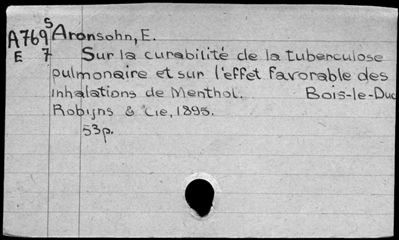 A769⁵ Aronsohn, E.
E 7 Sur la curabilité de la tuberculose
pulmonaire et sur l'effet favorable des
inhalations de Menthol. Bois-le-Duc
Robijns & Cie, 1895.
53p.